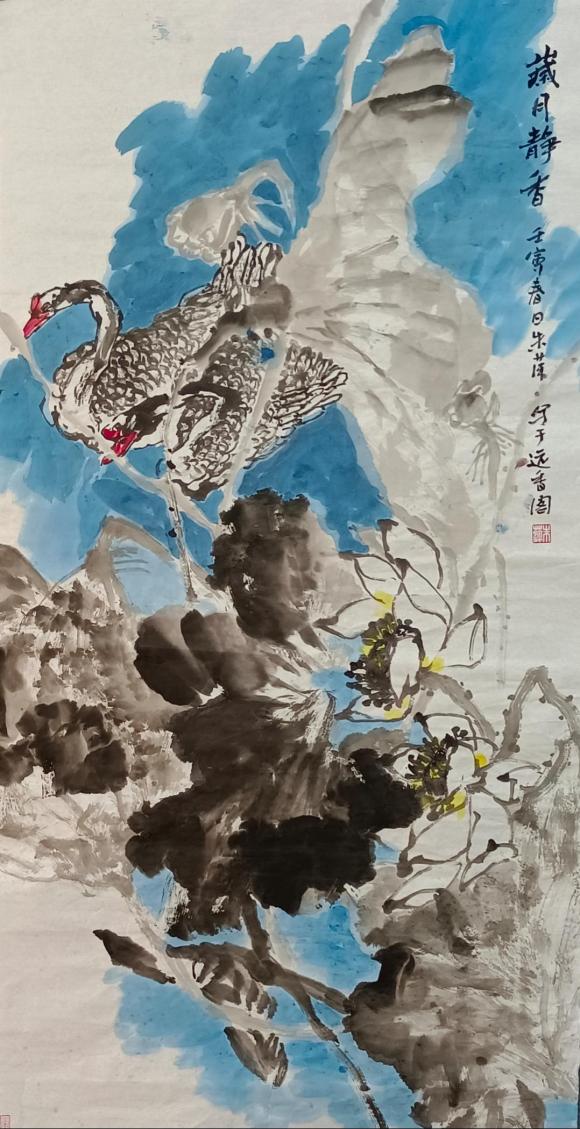 歲月静香 壬寅春日朱 写于远香阁